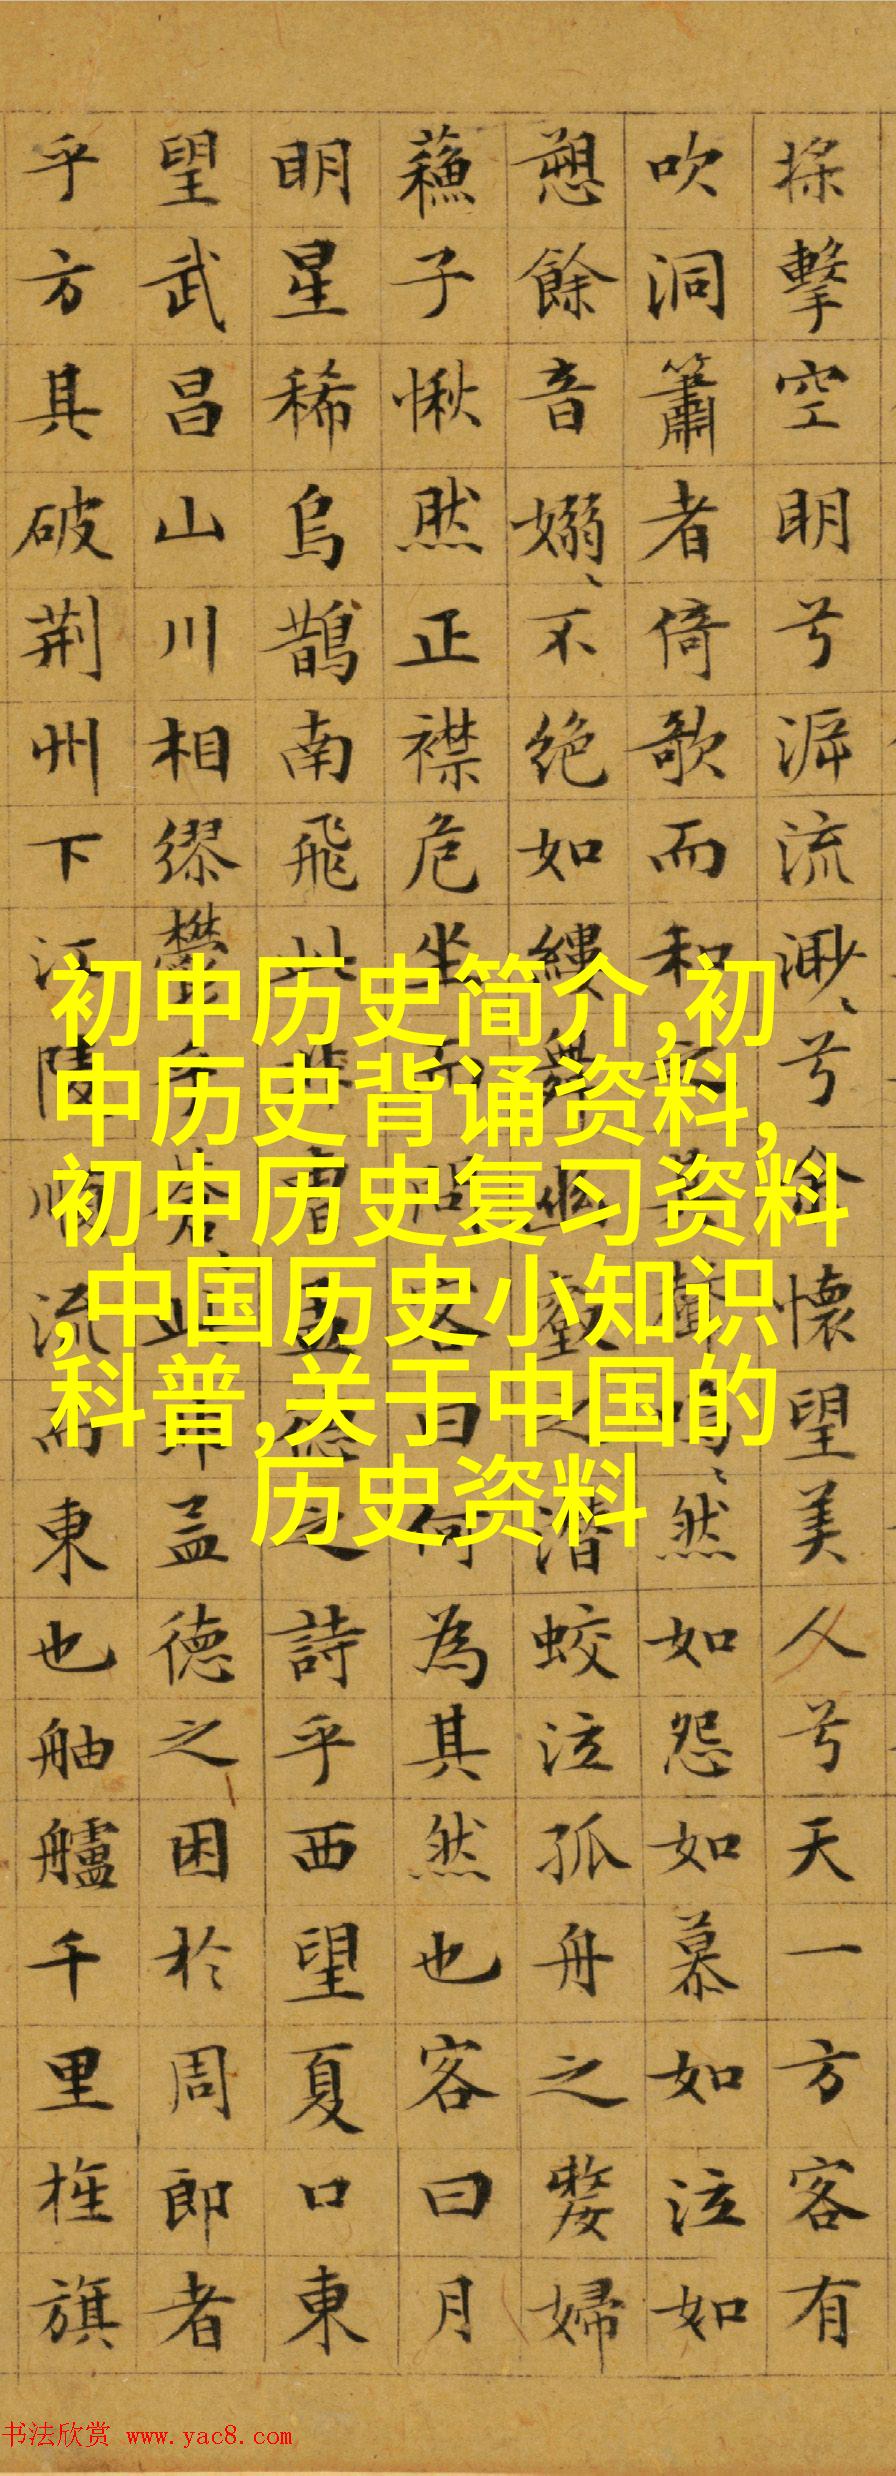 擊空明兮泝流渺〻兮余懷望美人兮天一方客有
吹洞簫者倚歌而和之其聲鳴〻然如怨如慕如泣如
愬餘音嫋〻不絶如縷舞幽壑之潛蛟泣孤舟之嫠婦
蘓子愀然正襟危坐而問客曰何為其然也客曰月
明星稀烏鵲南飛此非曹孟德之詩乎西望夏口東
望武昌山川相繆鬱乎蒼〻此非孟德之困於周郎者
乎方其破荆州下江陵順流而東也舳艫千里旌旗
初中历史简介,初
中历史背诵资料,
初中历史复习资料
,中国历史小知识
科普,关于中国的
历史资料
书法欣赏 www.yac8.com